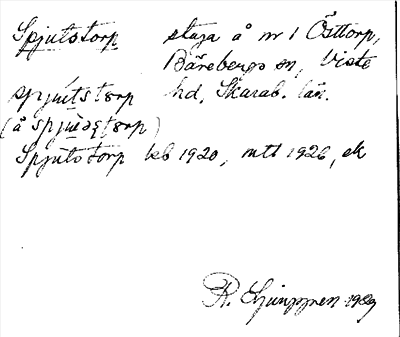 Spjutstorp stuga å nr 1 Östtorp,
Bärebergs sn, Viste
spjutstorp hd, Skarab. län.
(å spjuəstorp)
Spjutstorp kb 1920, mtl 1926, ek
R. Ljunggren 1929